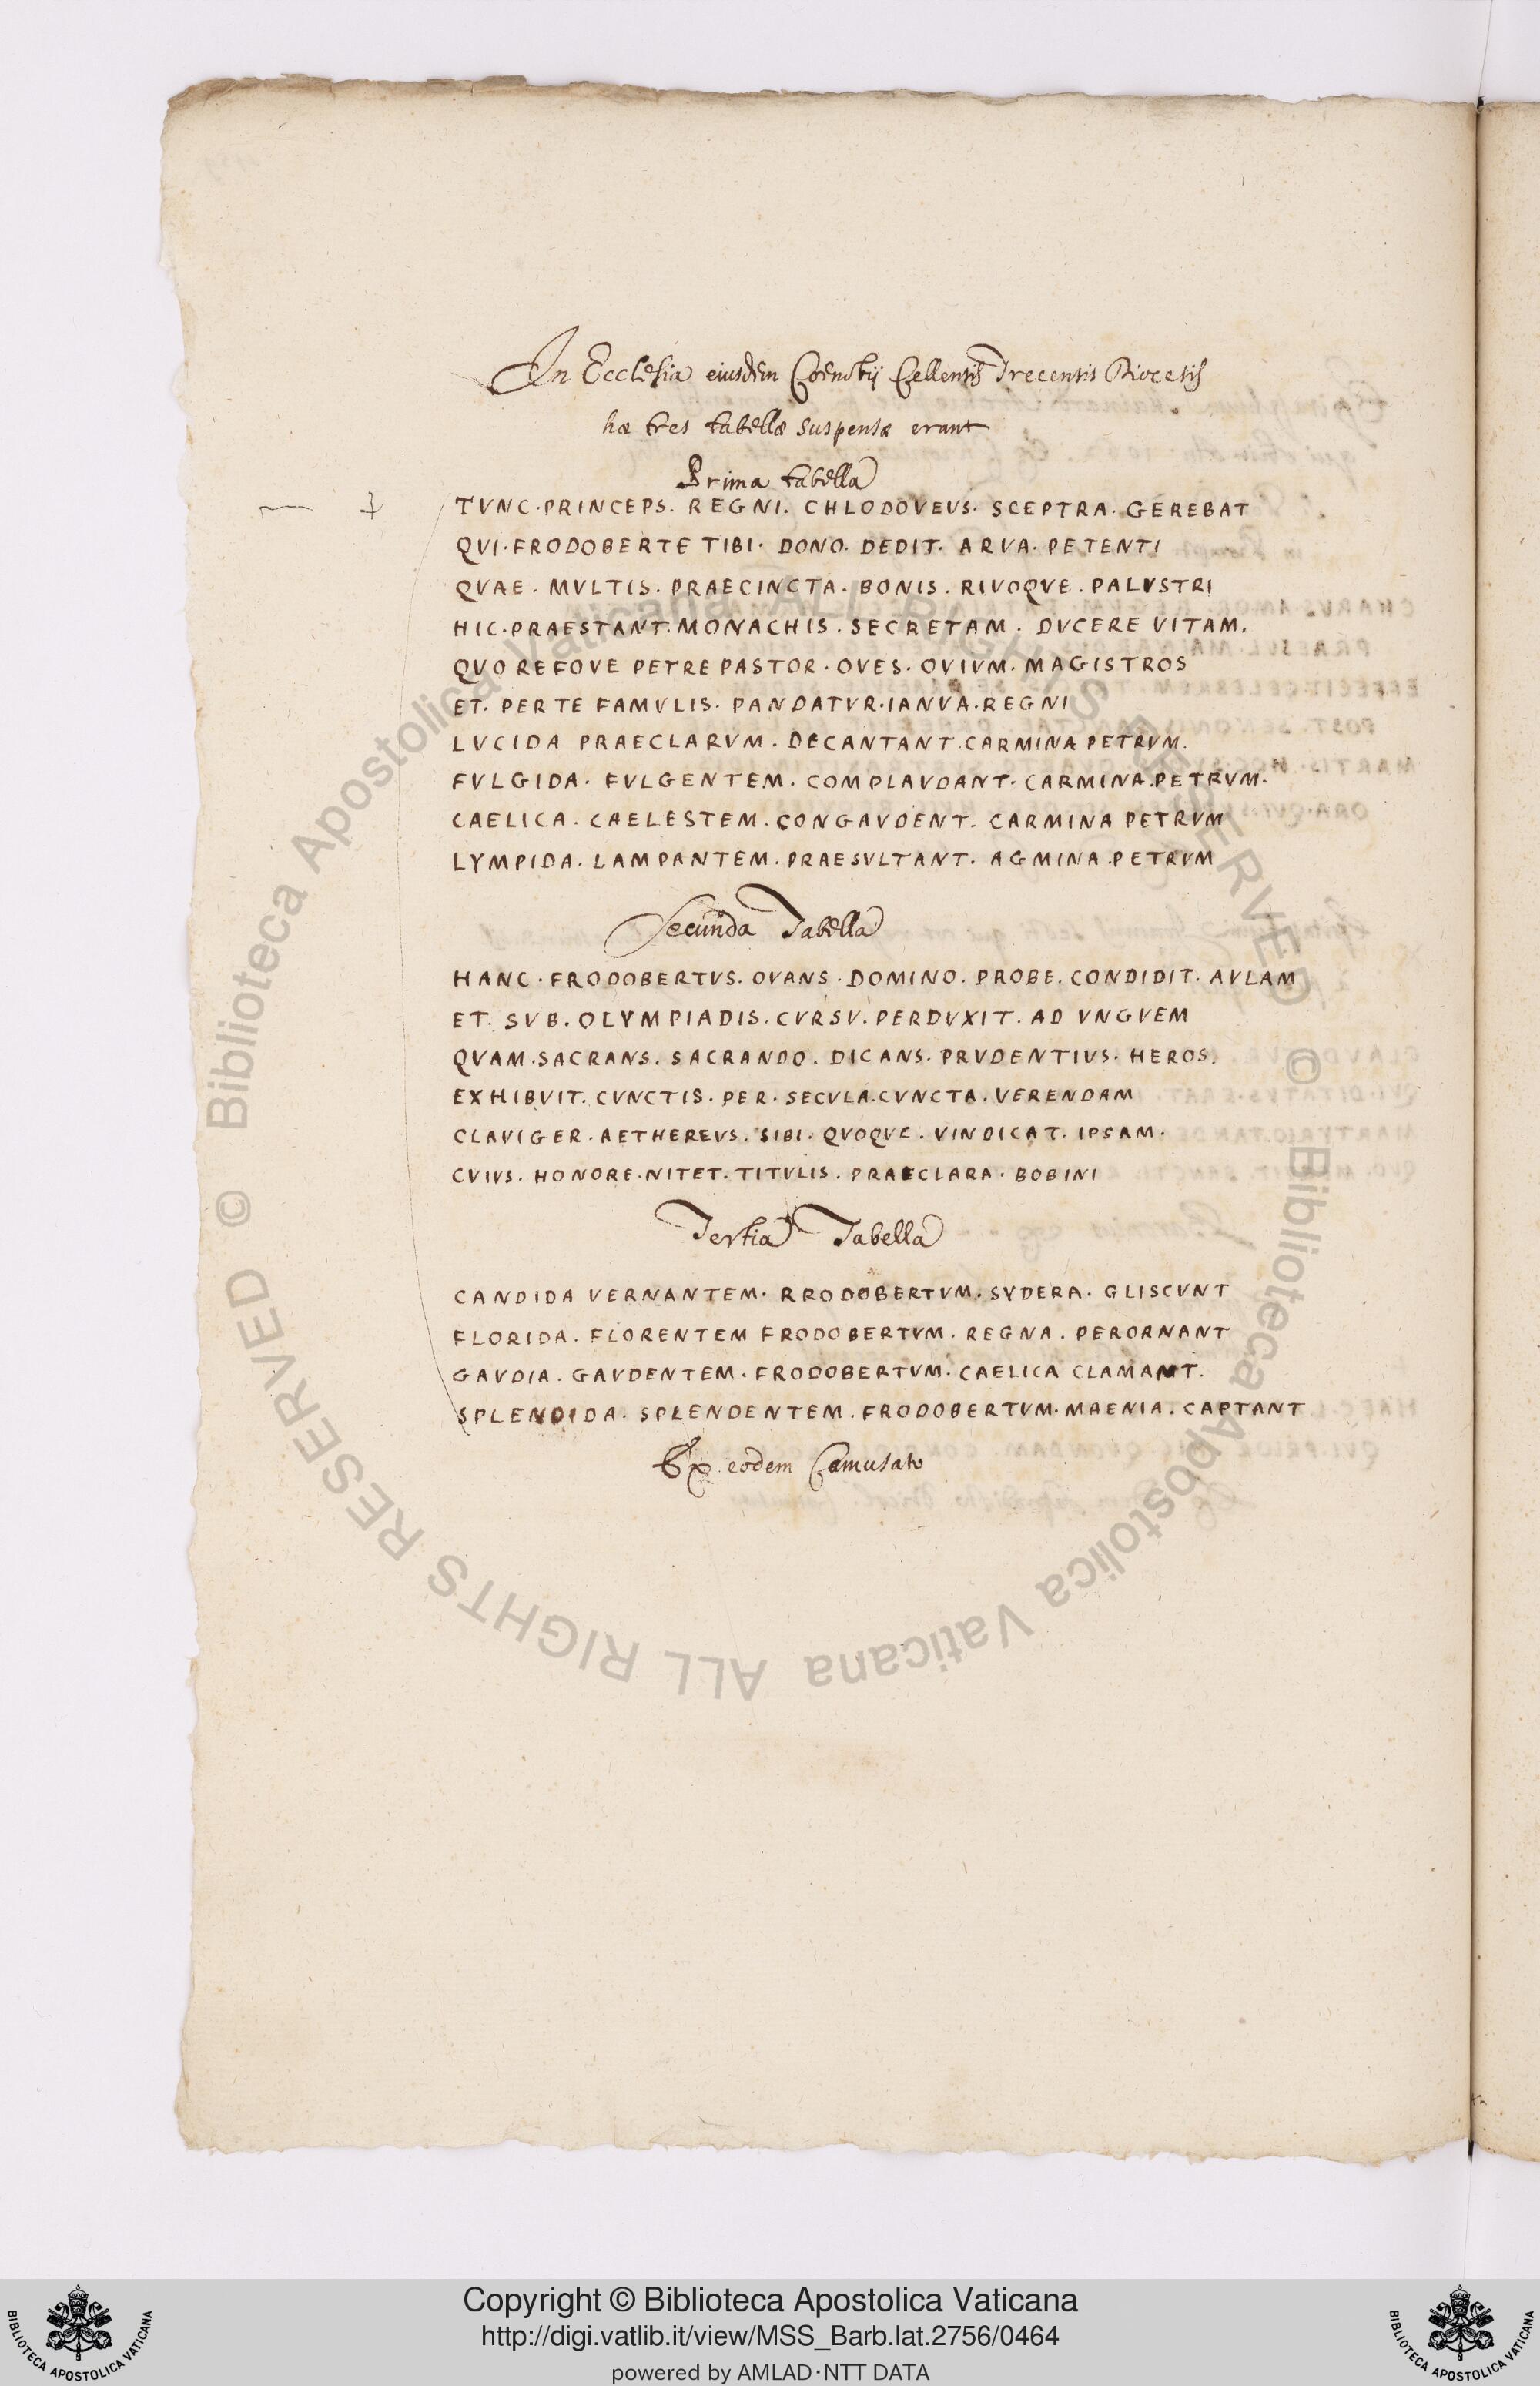 In Ecclesia eiusdem Coenobij Cellensis Trecensis Diocesis
hæ tres tabellæ suspensæ erant
Prima tabella
TVNC·PRINCEPS. REGNI. CHLODOVEVS· SCEPTRA· GEREBAT
QVI·FRODOBERTE TIBI· DONO· DEDIT· ARVA· PETENTI
QVAE· MVLTIS· PRAECINCTA· BONIS. RIVOQVE. PALVSTRI
HIC·PRAESTANT·MONACHIS. SECRETAM. DVCERE VITAM.
QVO REFOVE PETRE PASTOR· OVES· OVIVM· MAGISTROS
ET. PER TE FAMVLIS· PANDATVR·IANVA·REGNI
LVCIDA PRAECLARVM. DECANTANT·CARMINA PETRVM.
FVLGIDA· FVLGENTEM. COMPLAVDANT· CARMINA·PETRVM·
CAELICA. CAELESTEM. CONGAVDENT. CARMINA PETRVM
LYMPIDA. LAMPANTEM. PRAESVLTANT. AGMINA.PETRVM
Secunda Tabella
HANC·FRODOBERTVS. OVANS·DOMINO. PROBE. CONDIDIT· AVLAM
ET. SVB. OLYMPIADIS. CVRSV. PERDVXIT. AD VNGVEM
QVAM·SACRANS. SACRANDO. DICANS· PRVDENTIVS· HEROS.
EXHIBVIT. CVNCTIS· PER· SECVLA·CVNCTA· VERENDAM
CLAVIGER. AETHEREVS. SIBI· QVOQVE. VINDICAT. IPSAM·
CVIVS. HONORE·NITET. TITVLIS. PRAECLARA· BOBINI
Tertia Tabella
CANDIDA VERNANTEM· RRODOBERTVM·SYDERA· GLISCVNT
FLORIDA. FLORENTEM FRODOBERTVM. REGNA. PERORNANT
GAVDIA. GAVDENTEM· FRODOBERTVM· CAELICA CLAMANT.
SPLENDIDA. SPLENDENTEM. FRODOBERTVM·MAENIA. CAPTANT
Ex eodem Camusato
© Biblioteca Apostolica Vaticana ALL RIGHTS RESERVED © Biblioteca Apostolica Vaticana ALL RIGHTS RESERVED
Copyright © Biblioteca Apostolica Vaticana
http://digi.vatlib.it/view/MSS_Barb.lat.2756/0464
powered by AMLAD·NTT DATA
BIBLIOTECA APOSTOLICA VATICANA
BIBLIOTECA APOSTOLICA VATICANA